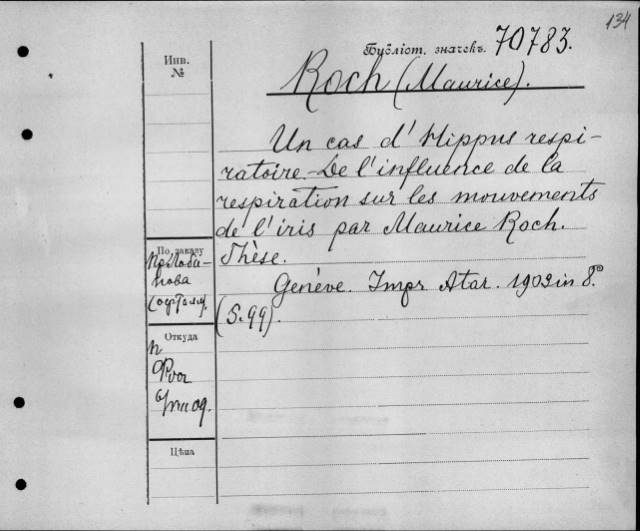 134
Бубліот. значекъ. 70783.
Инв.
№
Roch (Maurice).
Un cas d'Hippus respi-
ratoire - De l'influence de la
respiration sur les mouvements
de l'iris par Maurice Roch.
Thèse.
Genève. Impr Atar. 1903 in 8.º
(S. 99).
По заказу
нова
Откуда
Цѣна